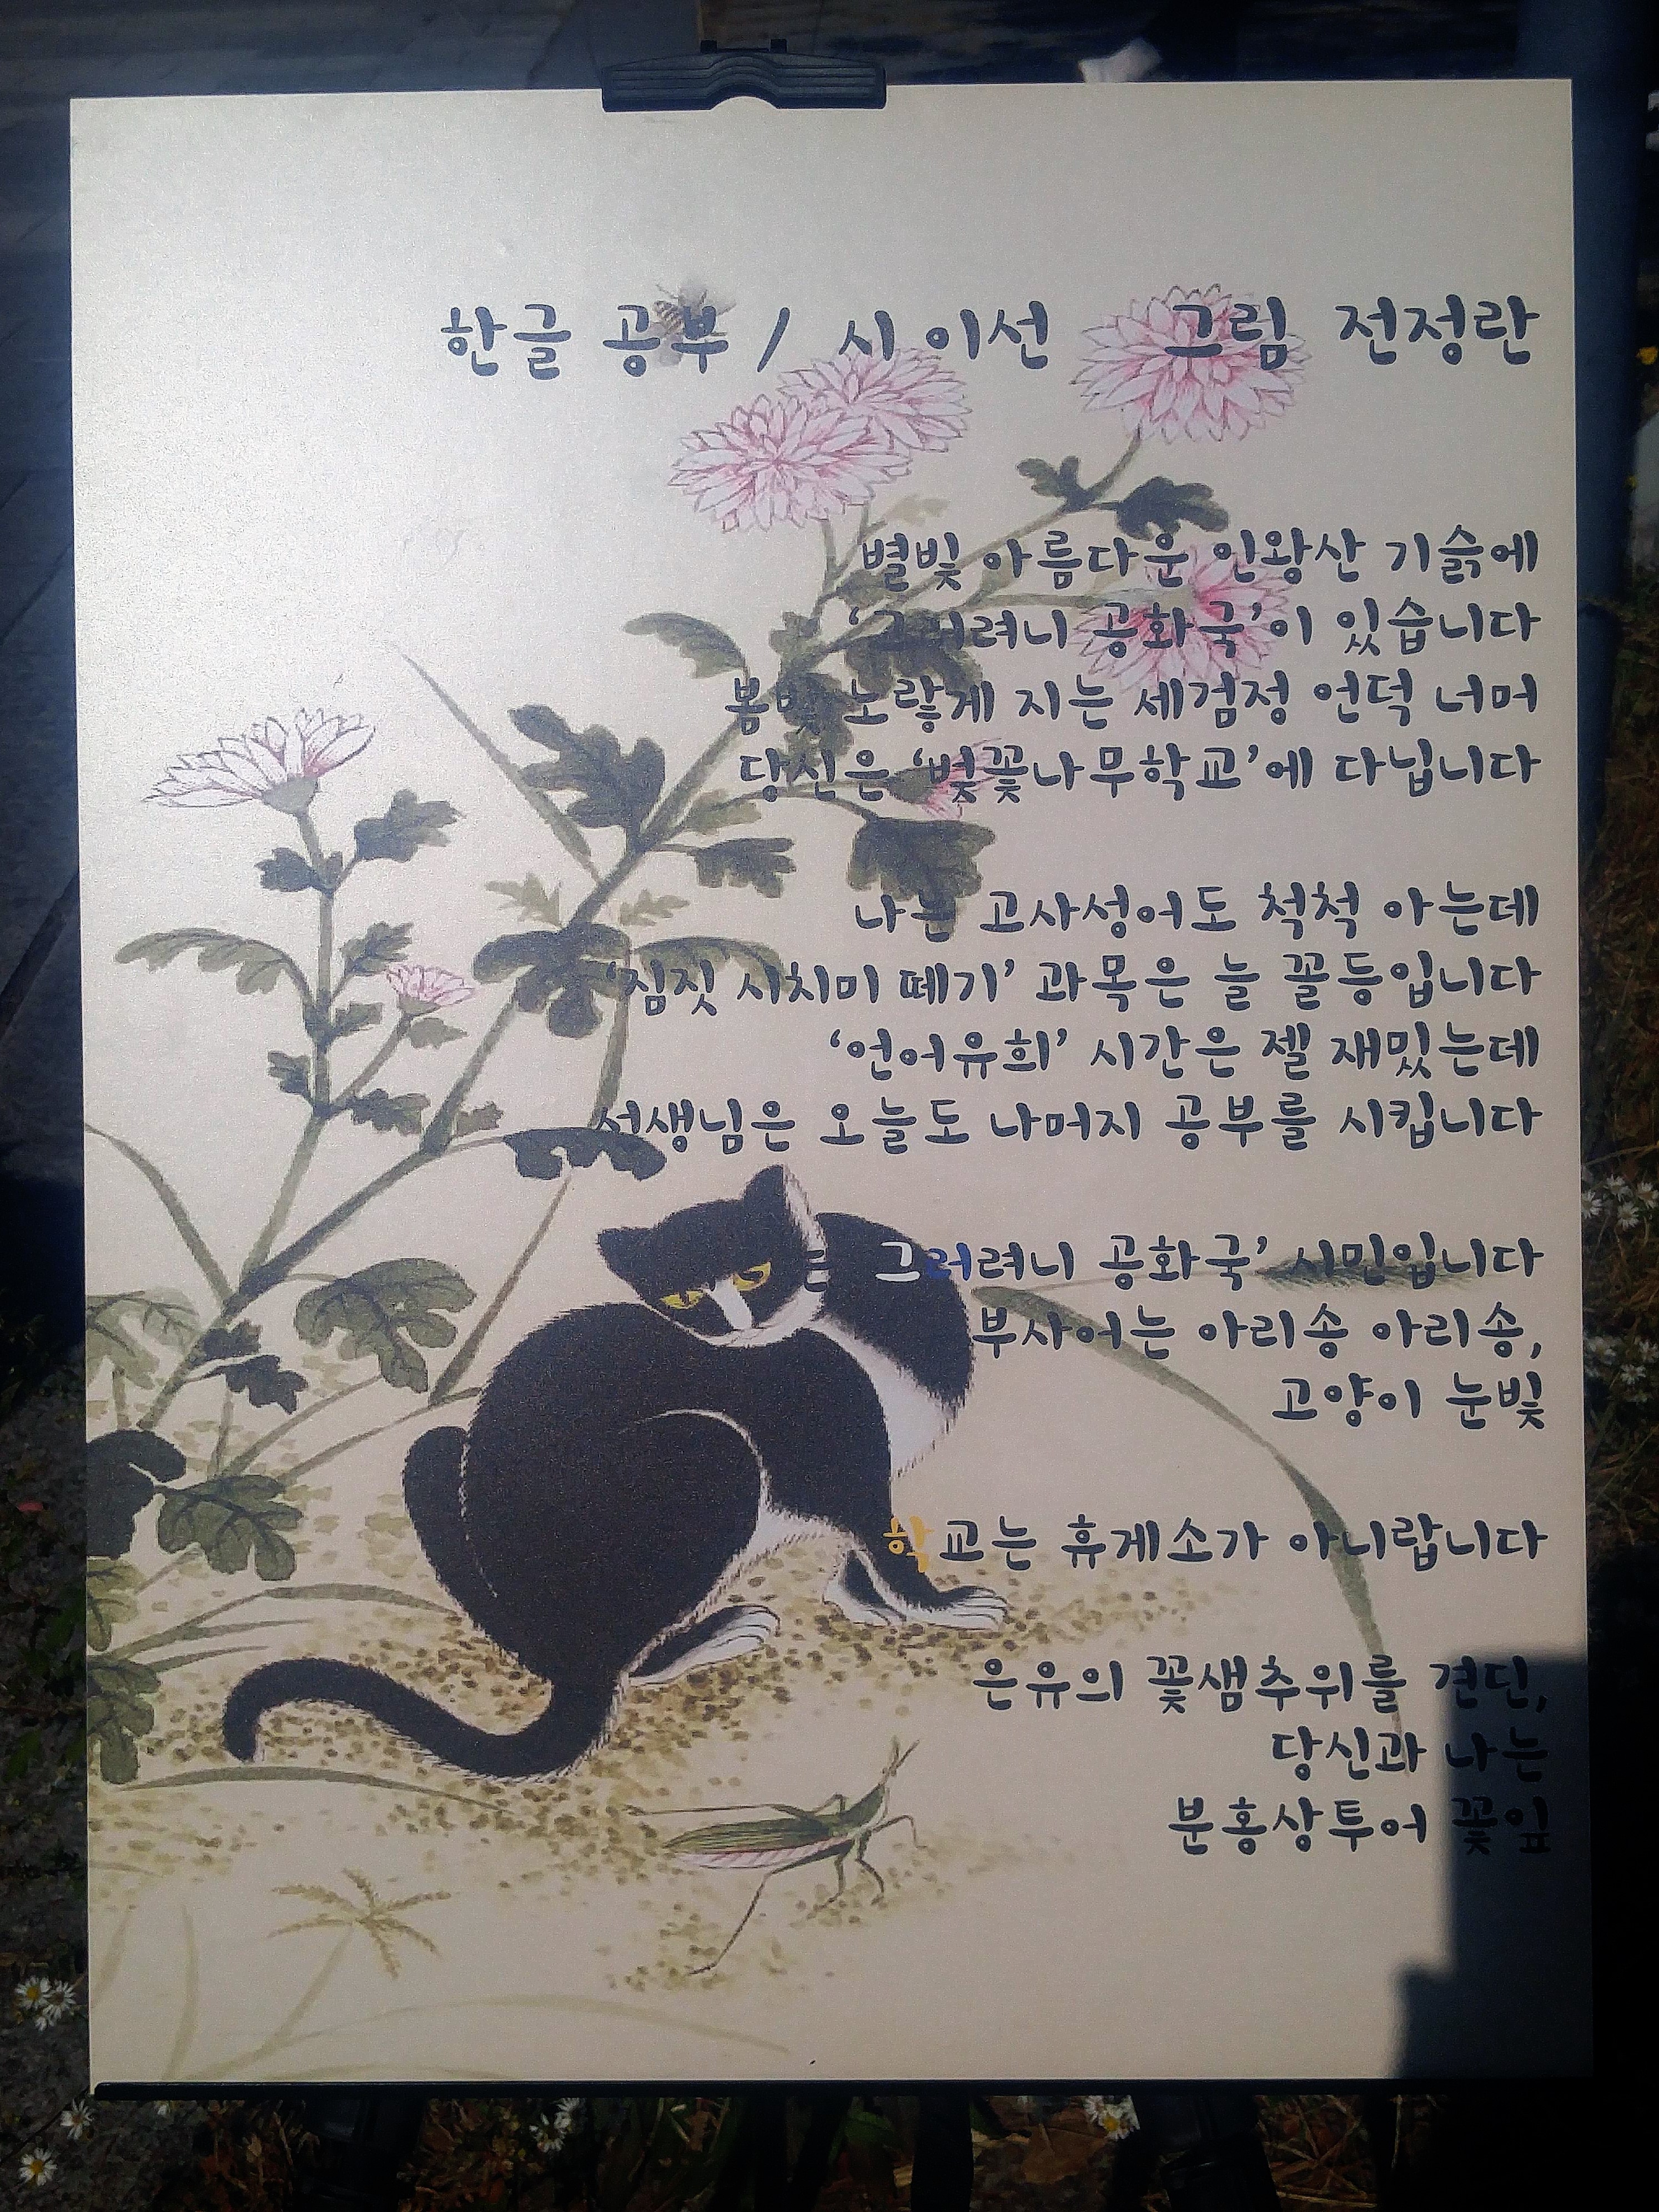 한글 공부 / 시 이선 그림 전정란
별빛 아름다운 인왕산 기슭에
‘그러려니 공화국’이 있습니다
봄빛 노랗게 지는 세검정 언덕 너머
당신은 ‘벚꽃나무학교’에 다닙니다
나는 고사성어도 척척 아는데
‘짐짓 시치미 떼기’ 과목은 늘 꼴등입니다
‘언어유희’ 시간은 젤 재밌는데
선생님은 오늘도 나머지 공부를 시킵니다
는 그러려니 공화국’ 시민입니다
부사어는 아리송 아리송,
고양이 눈빛
학교는 휴게소가 아니랍니다
은유의 꽃샘추위를 견딘,
당신과 나는
분홍상투어 꽃잎